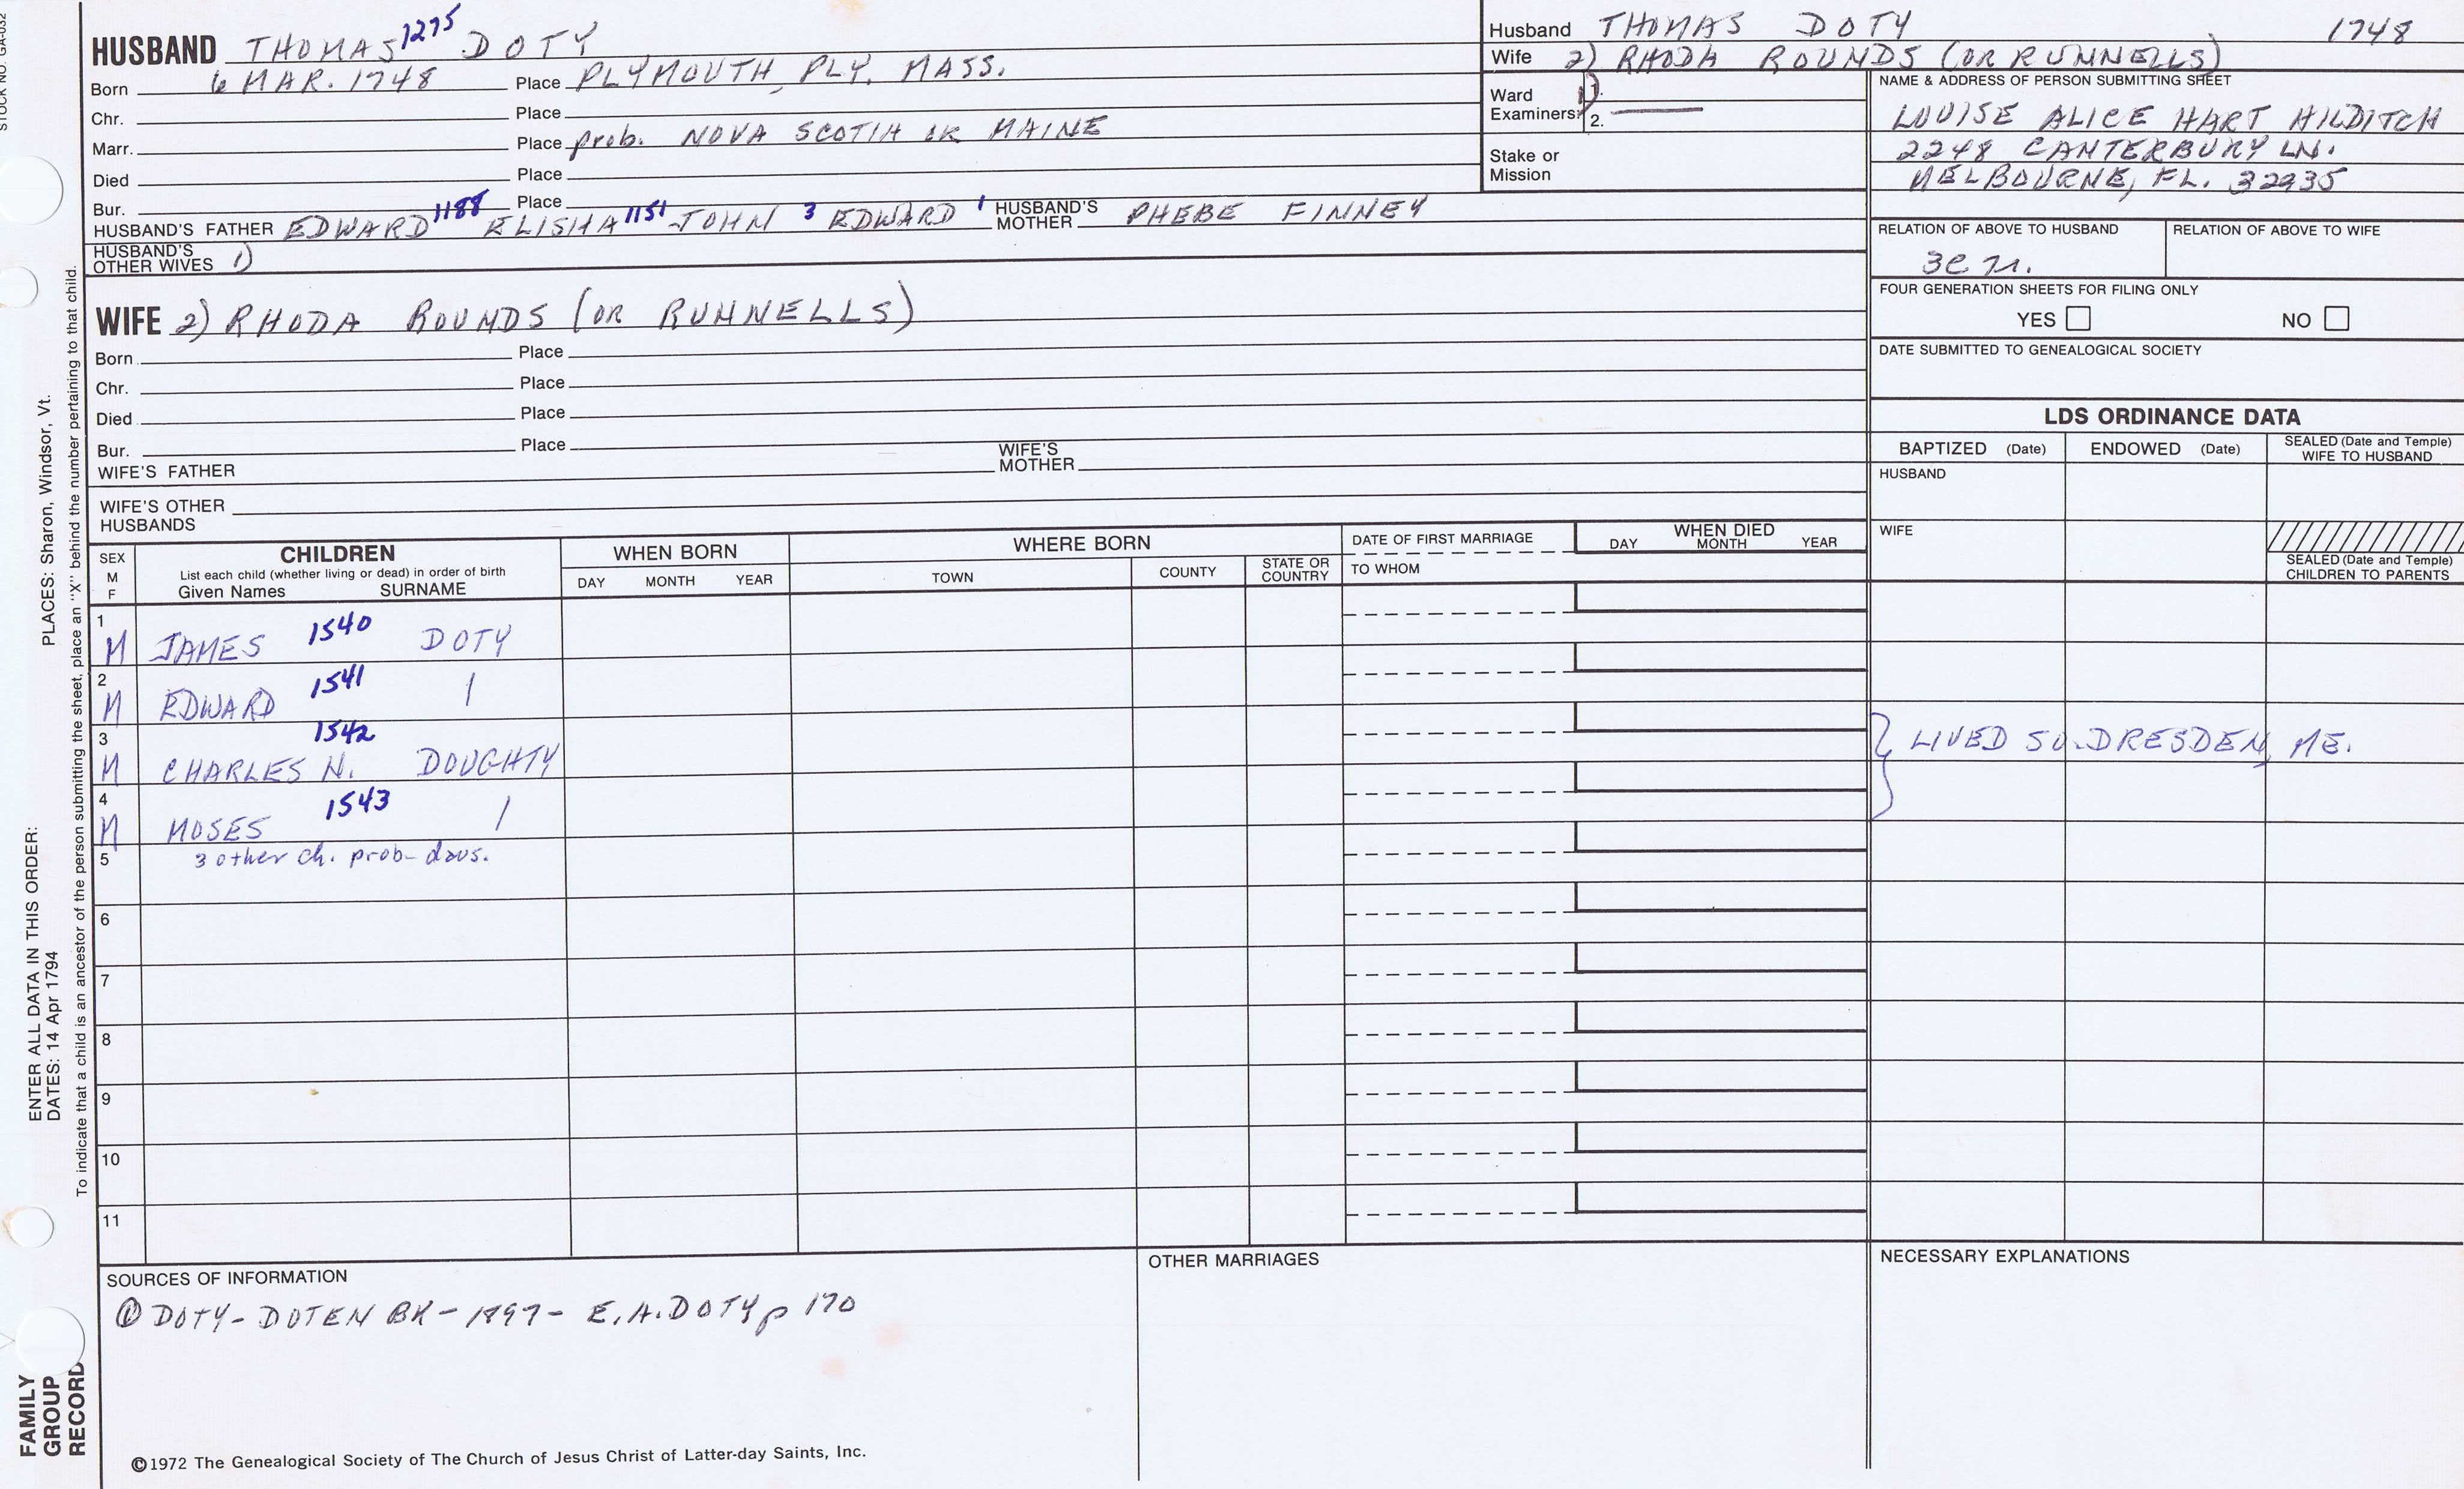 STOCK NO. GA-032
HUSBAND THOMAS 1275 DOTY
Born 6 MAR. 1748 Place PLYMOUTH, PLY. MASS.
Chr. Place
Marr. Place prob. NOVA SCOTIA OR MAINE
Died Place
Bur. Place
HUSBAND'S FATHER EDWARD 1188 ELISHA 1151 JOHN 3 EDWARD 1 HUSBAND'S MOTHER PHEBE FINNEY
HUSBAND'S OTHER WIVES 1)
WIFE 2) RHODA ROUNDS (OR RUNNELLS)
Born Place
Chr. Place
Died Place
Bur. Place
WIFE'S FATHER WIFE'S MOTHER
WIFE'S OTHER HUSBANDS
Husband THOMAS DOTY 1748
Wife 2) RHODA ROUNDS (OR RUNNELLS)
Ward Examiners: 1.
2.
Stake or Mission
NAME & ADDRESS OF PERSON SUBMITTING SHEET
LOUISE ALICE HART HILDITCH
2248 CANTERBURY LN.
MELBOURNE, FL. 32935
RELATION OF ABOVE TO HUSBAND RELATION OF ABOVE TO WIFE
FOUR GENERATION SHEETS FOR FILING ONLY
YES NO
DATE SUBMITTED TO GENEALOGICAL SOCIETY
LDS ORDINANCE DATA
BAPTIZED (Date) ENDOWED (Date) SEALED (Date and Temple) WIFE TO HUSBAND
HUSBAND
WIFE
SEALED (Date and Temple) CHILDREN TO PARENTS
SEX M F
CHILDREN
List each child (whether living or dead) in order of birth
Given Names SURNAME
WHEN BORN
DAY MONTH YEAR
WHERE BORN
TOWN COUNTY STATE OR COUNTRY
DATE OF FIRST MARRIAGE
TO WHOM
WHEN DIED
DAY MONTH YEAR
1 M JAMES 1540 DOTY
2 M EDWARD 1541 /
3 M CHARLES N. 1542 DOUGHTY
} LIVED SO. DRESDEN, ME.
4 M MOSES 1543 /
5 3 other ch. prob- daus.
6
7
8
9
10
11
SOURCES OF INFORMATION
① DOTY-DOTEN BK - 1897 - E.A. DOTY p 170
OTHER MARRIAGES
NECESSARY EXPLANATIONS
©1972 The Genealogical Society of The Church of Jesus Christ of Latter-day Saints, Inc.
FAMILY GROUP RECORD
ENTER ALL DATA IN THIS ORDER:
DATES: 14 Apr 1794
PLACES: Sharon, Windsor, Vt.
To indicate that a child is an ancestor of the person submitting the sheet, place an "X" behind the number pertaining to that child.